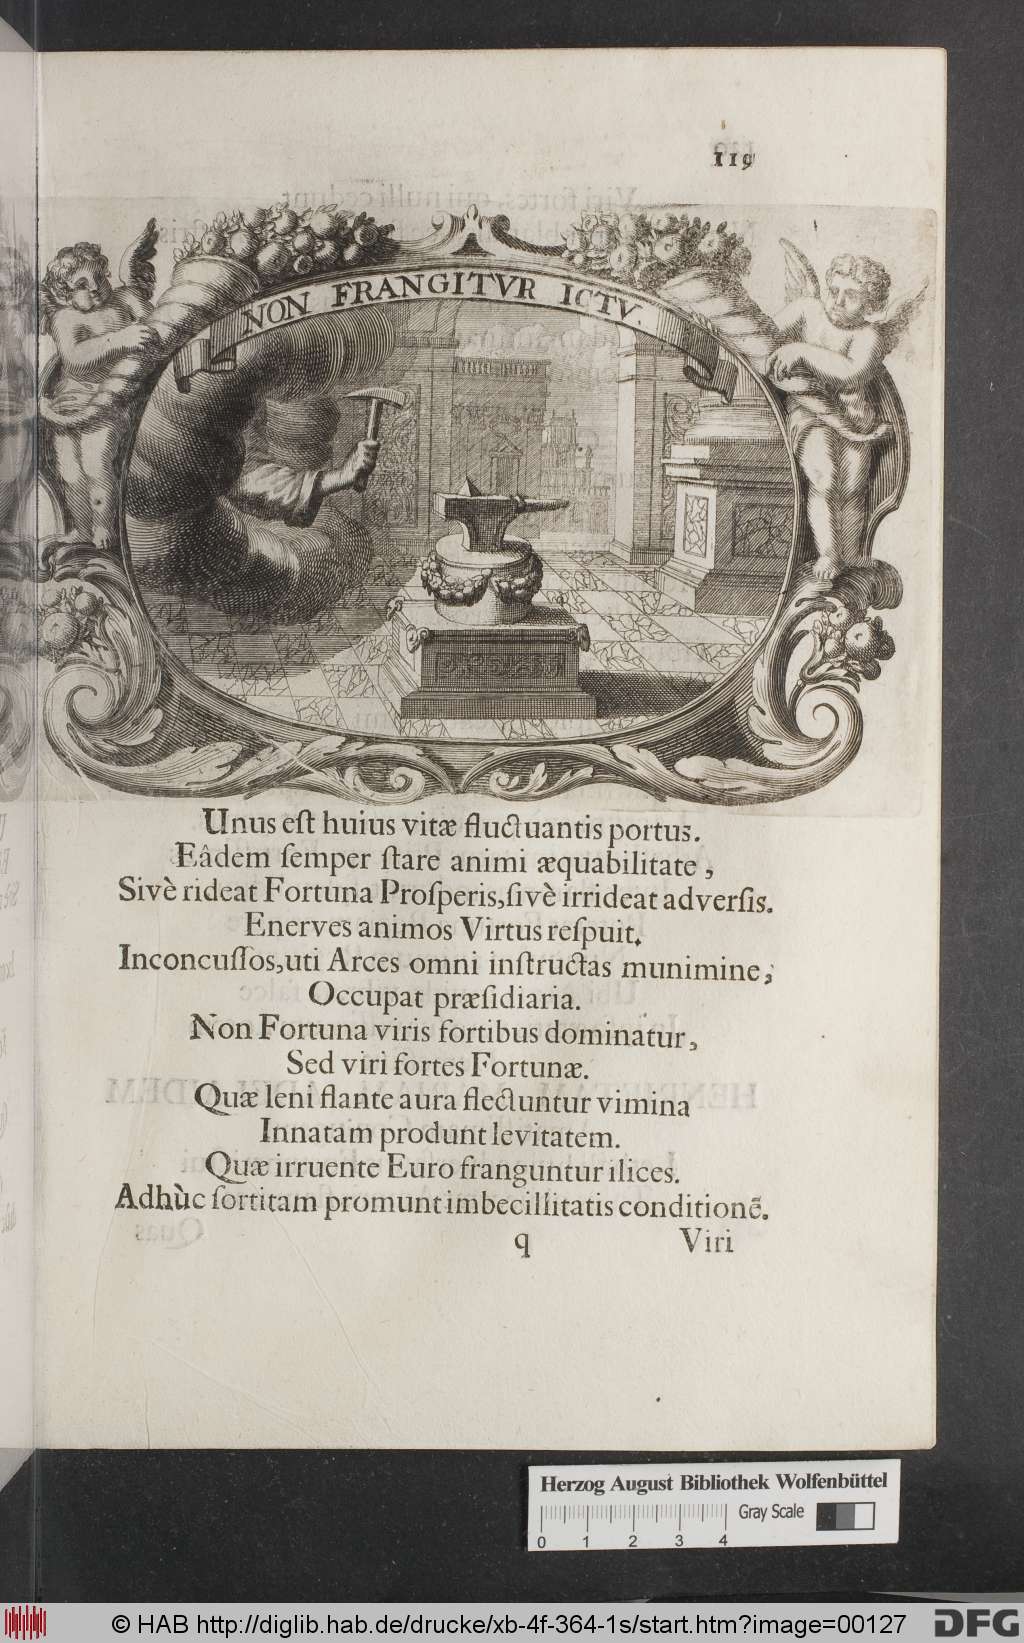 119
NON FRANGITVR ICTV.
Unus eſt huius vitæ fluctuantis portus.
Eâdem ſemper ſtare animi æquabilitate,
Sivè rideat Fortuna Proſperis,ſivè irrideat adverſis.
Enerves animos Virtus reſpuit.
Inconcuſſos,uti Arces omni inſtructas munimine,
Occupat præſidiaria.
Non Fortuna viris fortibus dominatur,
Sed viri fortes Fortunæ.
Quæ leni flante aura flectuntur vimina
Innatam produnt levitatem.
Quæ irruente Euro franguntur ilices.
Adhùc ſortitam promunt imbecillitatis conditionē.
q Viri
Herzog August Bibliothek Wolfenbüttel
Gray Scale
0 1 2 3 4
© HAB http://diglib.hab.de/drucke/xb-4f-364-1s/start.htm?image=00127
DFG